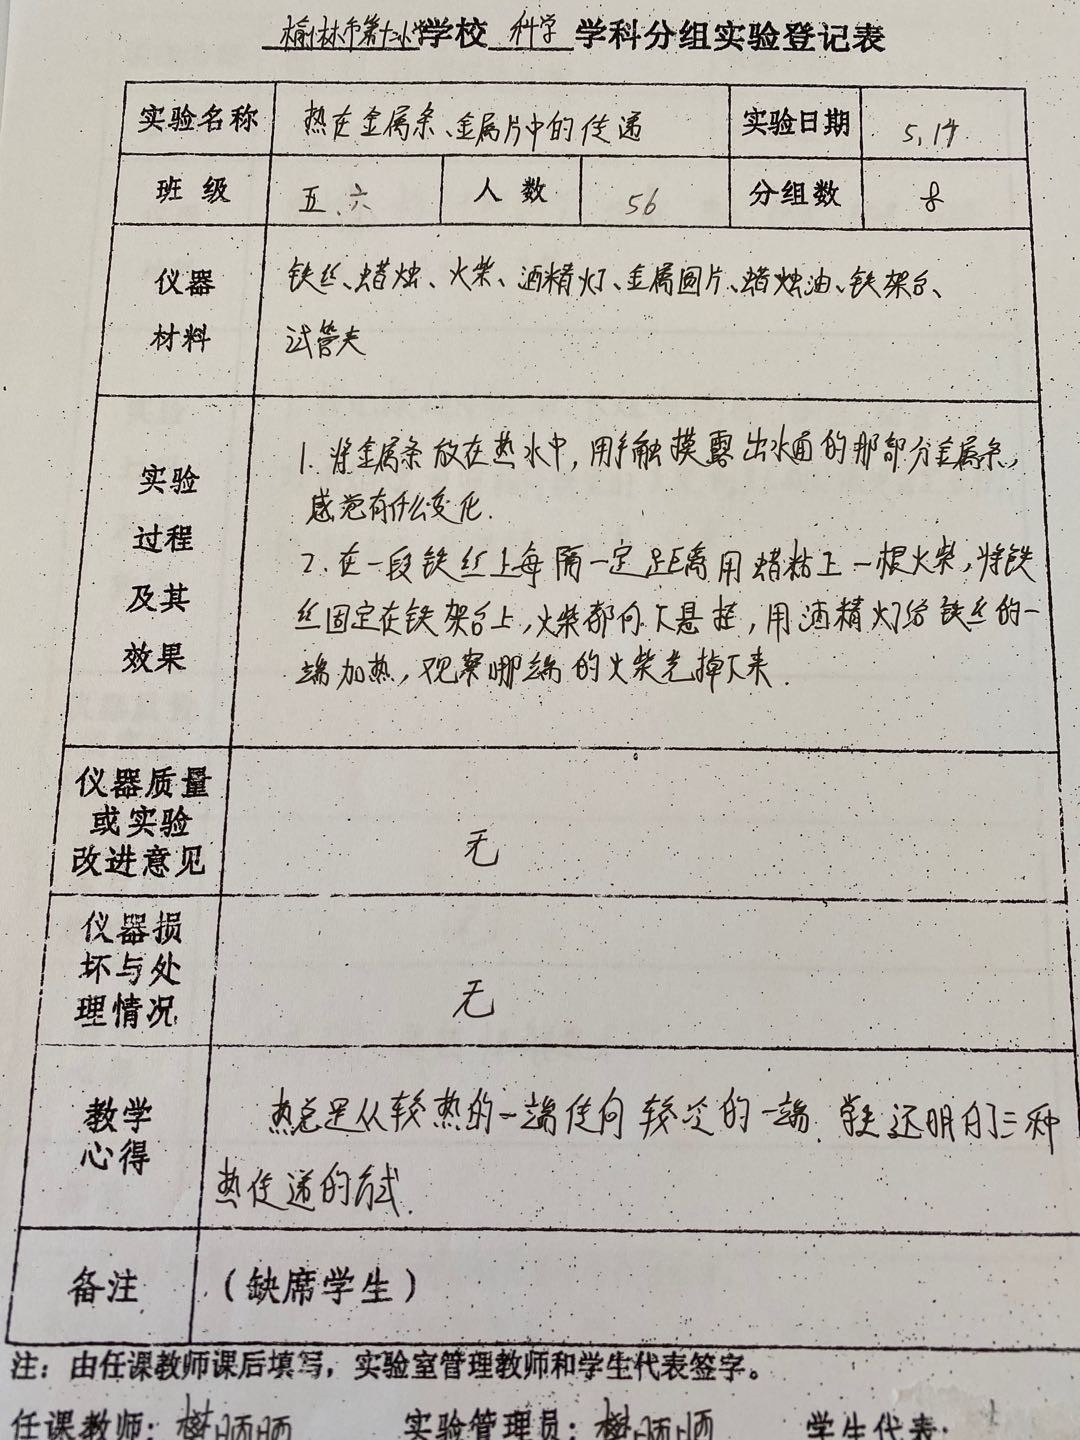 榆林市第十二小学学校 科学 学科分组实验登记表
实验名称 热在金属条、金属片中的传递 实验日期 5.14
班级 五.六 人数 56 分组数 8
仪器 铁丝、蜡烛、火柴、酒精灯、金属圆片、蜡烛油、铁架台、
材料 试管夹
实验 1. 将金属条放在热水中,用手触摸露出水面的那部分金属条,
过程 感觉有什么变化.
及其 2. 在一段铁丝上每隔一定距离用蜡粘上一根火柴,将铁
效果 丝固定在铁架台上,火柴都向下悬挂,用酒精灯给铁丝的一
端加热,观察哪端的火柴先掉下来.
仪器质量
或实验
改进意见 无
仪器损
坏与处
理情况 无
教学 热总是从较热的一端传向较冷的一端. 还明白了三种
心得 热传递的方式.
备注 (缺席学生)
注:由任课教师课后填写,实验室管理教师和学生代表签字。
任课教师: 实验管理员: 学生代表: